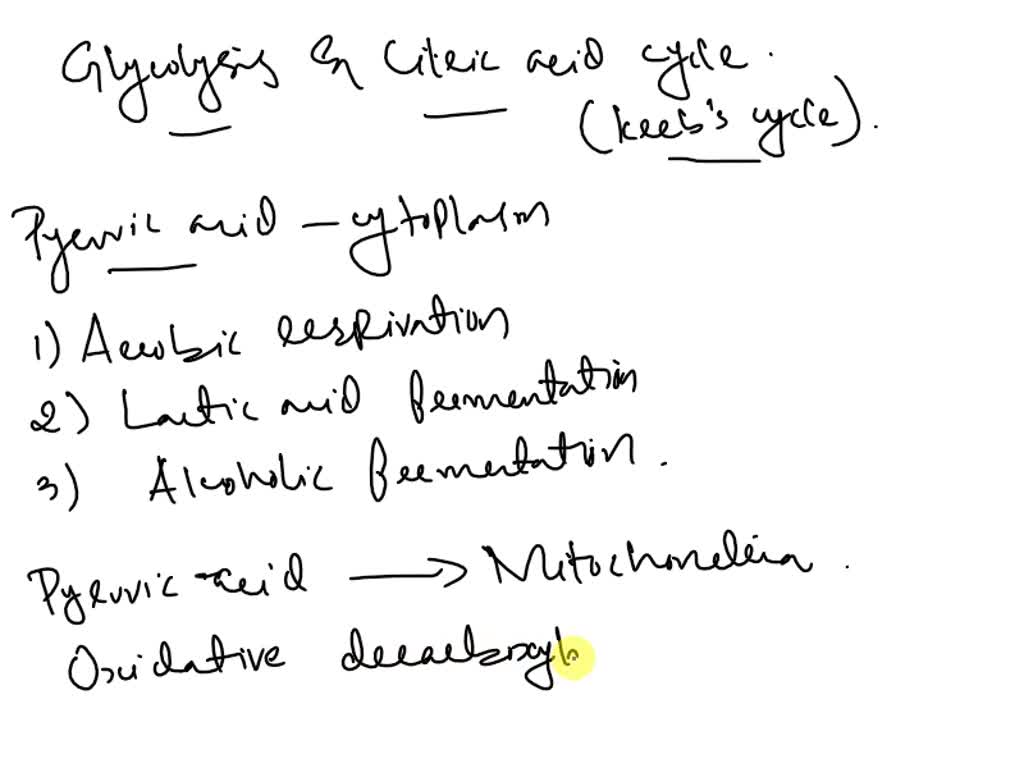 Glycolysis & Citric acid cycle.
(kreb's cycle).
Pyruvic acid - cytoplasm
1) Aerobic respiration
2) Lactic acid fermentation
3) Alcoholic fermentation.
Pyruvic acid → Mitochondria.
Oxidative decarboxyl